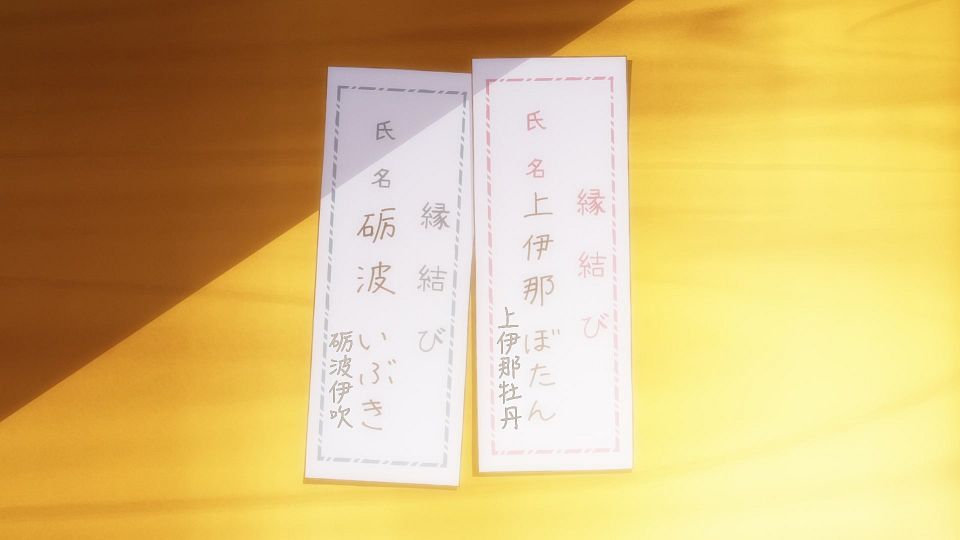 縁結び
氏名上伊那ぼたん
上伊那牡丹
縁結び
氏名砺波いぶき
砺波伊吹